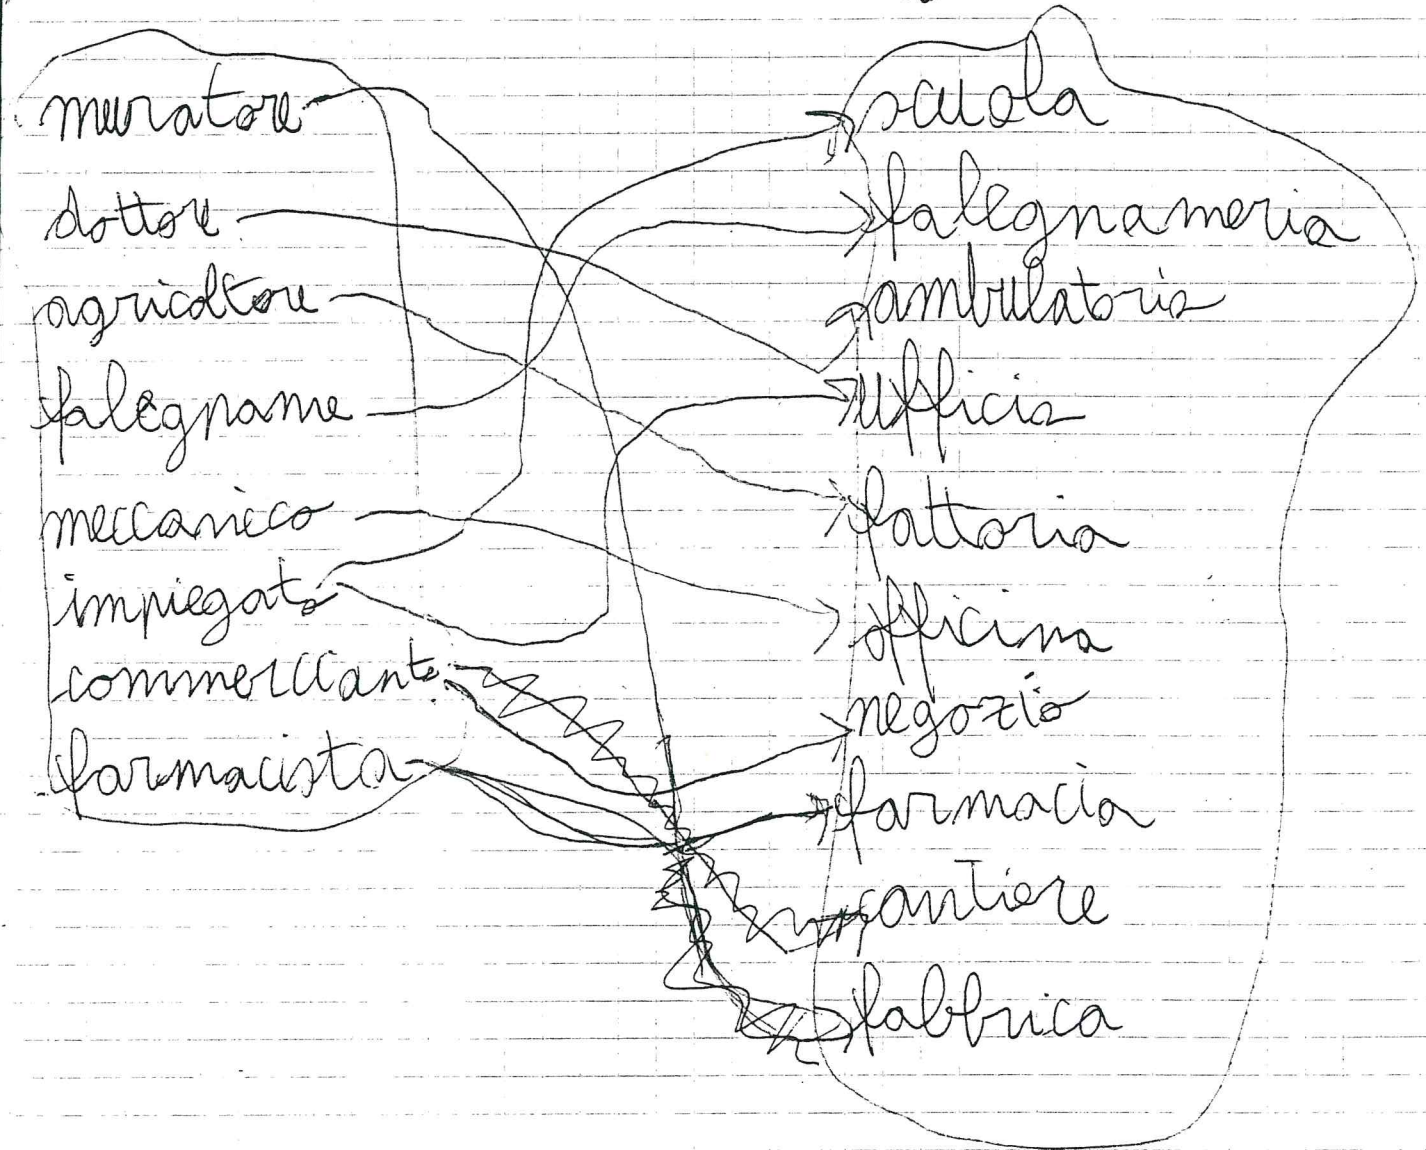 muratore
dottore
agricoltore
falegname
meccanico
impiegato
commerciante
farmacista
scuola
falegnameria
ambulatorio
ufficio
fattoria
officina
negozio
farmacia
cantiere
fabbrica